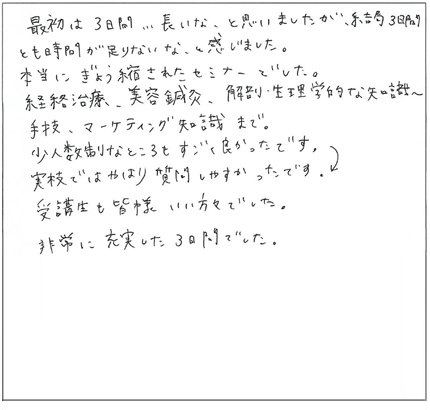 最初は3日間…長いな、と思いましたが、結局3日間
とも時間が足りないな、と感じました。
本当にぎょう縮されたセミナーでした。
経絡治療、美容鍼灸、解剖・生理学的な知識〜
手技、マーケティング知識まで。
少人数制なところもすごく良かったです。
実技ではやはり質問しやすかったです。
受講生も皆様いい方々でした。
非常に充実した3日間でした。